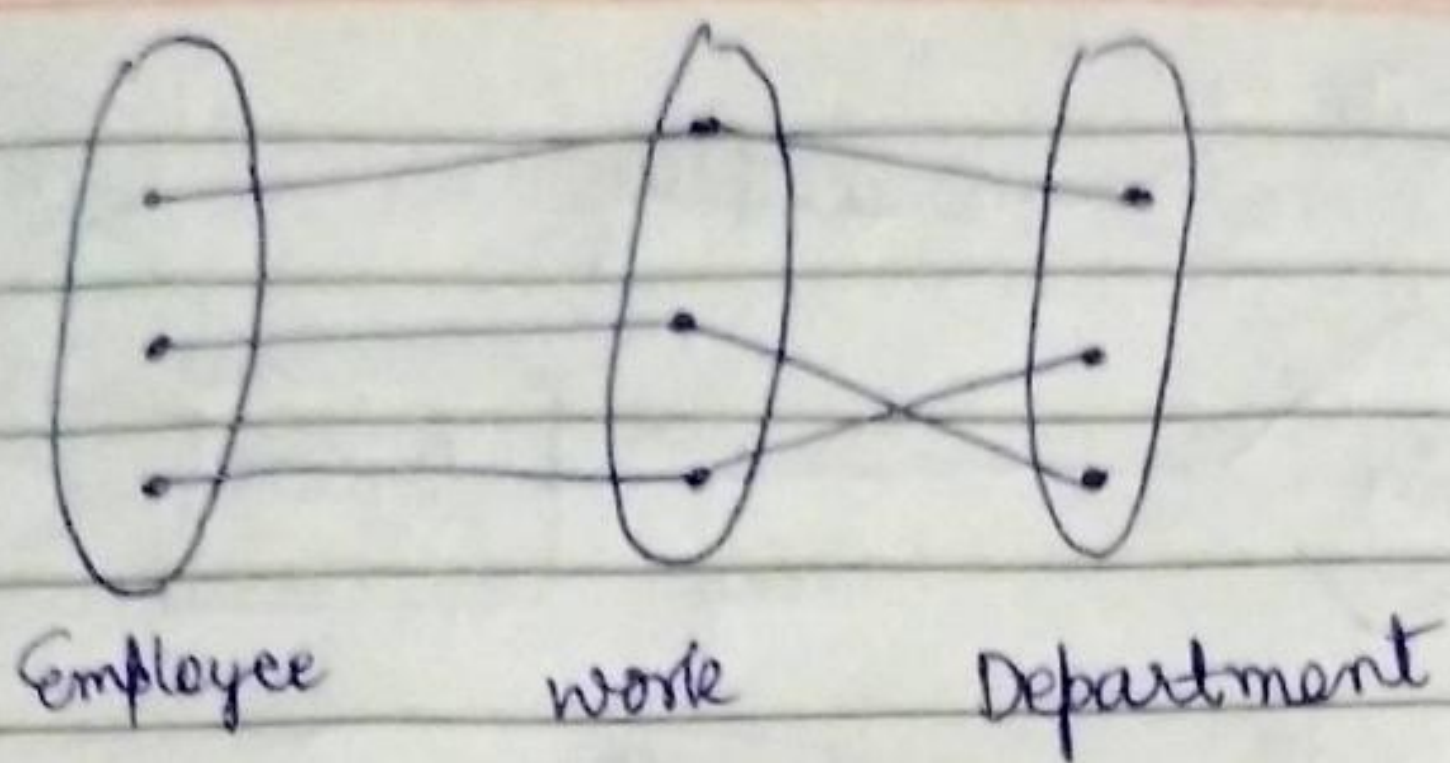 Employee work Department